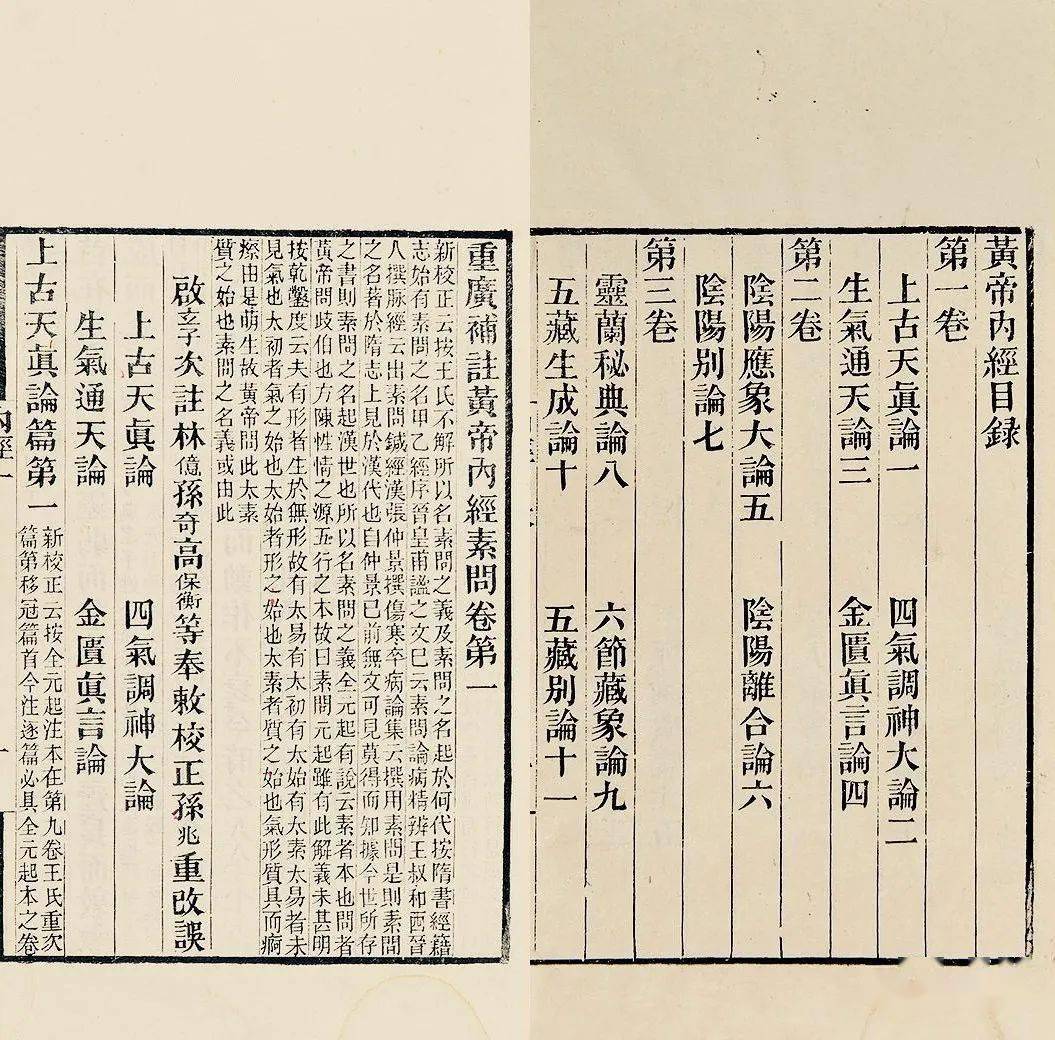 黃帝內經目録
第一卷
上古天眞論一　四氣調神大論二
生氣通天論三　金匱眞言論四
第二卷
陰陽應象大論五　陰陽離合論六
陰陽別論七
第三卷
靈蘭秘典論八　六節藏象論九
五藏生成論十　五藏別論十一
重廣補註黃帝內經素問卷第一
新校正云按王氏不解所以名素問之義及素問之名起於何代按隋書經籍
志始有素問之名甲乙經序晉皇甫謐之文已云素問論病精辨王叔和西晉
人撰脉經云出素問鍼經漢張仲景撰傷寒卒病論集云撰用素問是則素問
之名著於隋志上見於漢代也自仲景已前無文可見莫得而知據今世所存
之書則素問之名起漢世也所以名素問之義全元起有說云素者本也問者
黃帝問歧伯也方陳性情之源五行之本故曰素問元起雖有此解義未甚明
按乾鑿度云夫有形者生於無形故有太易有太初有太始有太素太易者未
見氣也太初者氣之始也太始者形之始也太素者質之始也氣形質具而痾
瘵由是萌生故黃帝問此太素
質之始也素問之名義或由此
啟玄子次註林億孫奇高保衡等奉敕校正孫兆重改誤
上古天眞論　四氣調神大論
生氣通天論　金匱眞言論
上古天眞論篇第一
新校正云按全元起注本在第九卷王氏重次
篇第移冠篇首今注逐篇必具全元起本之卷
內經一
一